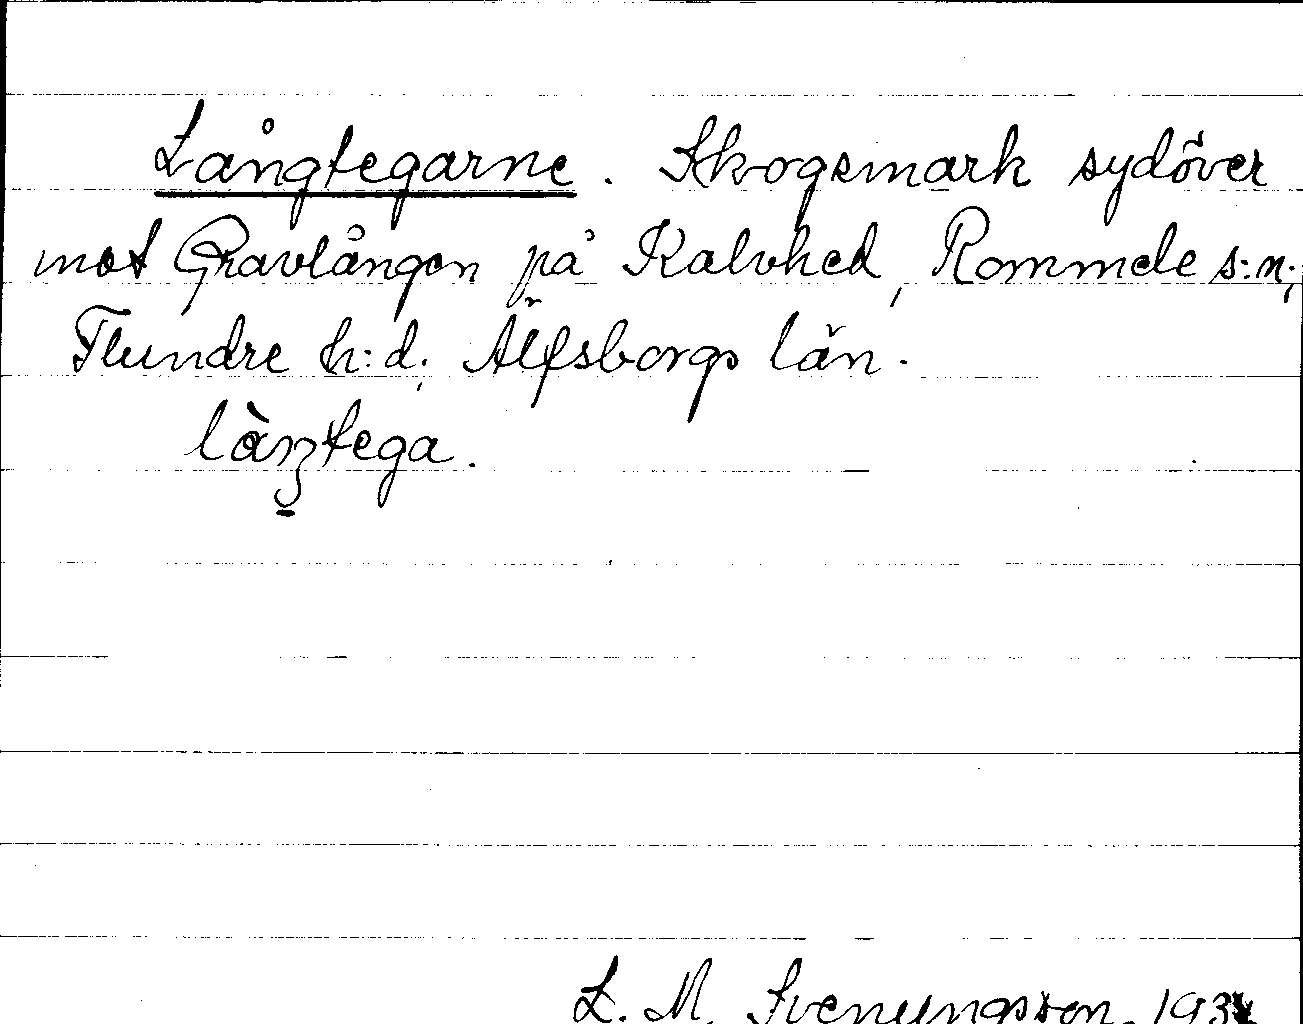 Långtegarne. Skogsmark sydöver
mot Gravlången på Kalvhed, Rommele s:n;
Flundre h:d; Älfsborgs län.
tega.
L. M. Svenungsson. 193